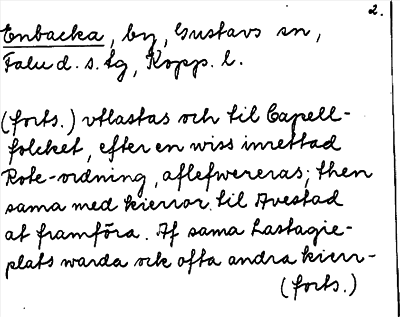 2.
Enbacka, by, Gustavs sn,
Falu d. s. lg, Kopp. l.
(forts.) vtlastas och til Capell-
folcket, efter en wiss inrettad
Rote-ordning, aflefwereras; then
sama med kierror til Avestad
at framföra. Af sama Lastagie-
plats warda ock ofta andra kierr-
(forts.)